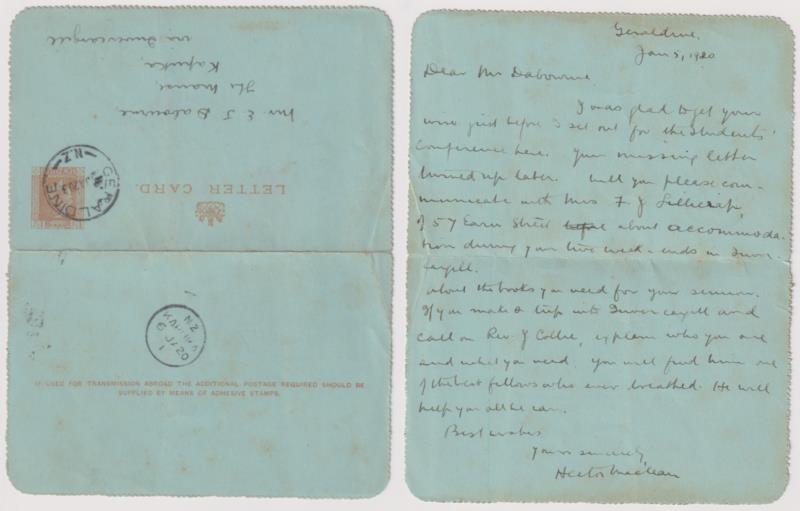 Mr. E J Dabourne,
The Manse,
Kapuka,
via Invercargill
GERALDINE
N.Z.
LETTER CARD.
N.Z
KAPUKA
6 JA 20
IF USED FOR TRANSMISSION ABROAD THE ADDITIONAL POSTAGE REQUIRED SHOULD BE
SUPPLIED BY MEANS OF ADHESIVE STAMPS.
Geraldine.
Jan 5, 1920
Dear Mr Dabourne.
I was glad to get your
wire just before I set out for the Students'
Conference here. Your missing letter
turned up later. Will you please com-
municate with Mrs F J
of 57 Earn Street about accommoda-
tion during your week-ends in Inver-
cargill.
About the books you need for your
If you make a trip into Invercargill and
call on Rev. J Collie, explain who you are
and what you need. You will find him one
of the best fellows who ever breathed. He will
help you all he can.
Best wishes
Yours sincerely
Hector Maclean